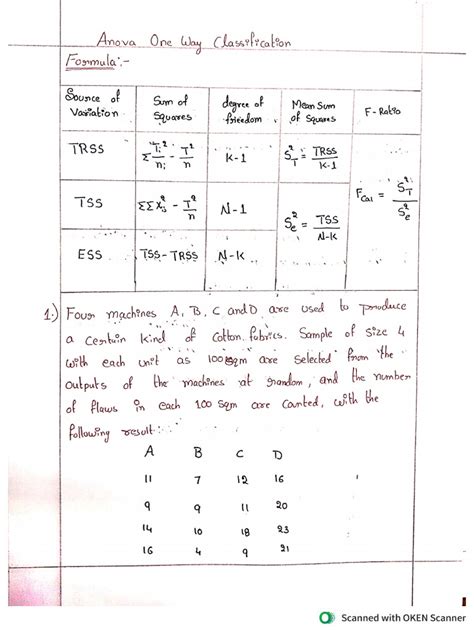 Anova One Way Classification
Formula:-
Source of Variation | Sum of Squares | degree of freedom | Mean Sum of Squares | F-Ratio
TRSS | Σ Ti²/ni - T²/n | K-1 | S²T = TRSS/K-1 | FCal = S²T/S²e
TSS | ΣΣ X²ij - T²/n | N-1 | S²e = TSS/N-K
ESS | TSS-TRSS | N-K
1.) Four machines A, B, C and D are used to produce
a certain kind of Cotton fabrics. Sample of size 4
with each unit as 100sqm are selected from the
outputs of the machines at random, and the number
of flaws in each 100 sqm are counted, with the
following result:
A B C D
11 7 12 16
9 9 11 20
14 10 18 23
16 4 9 21
Scanned with OKEN Scanner